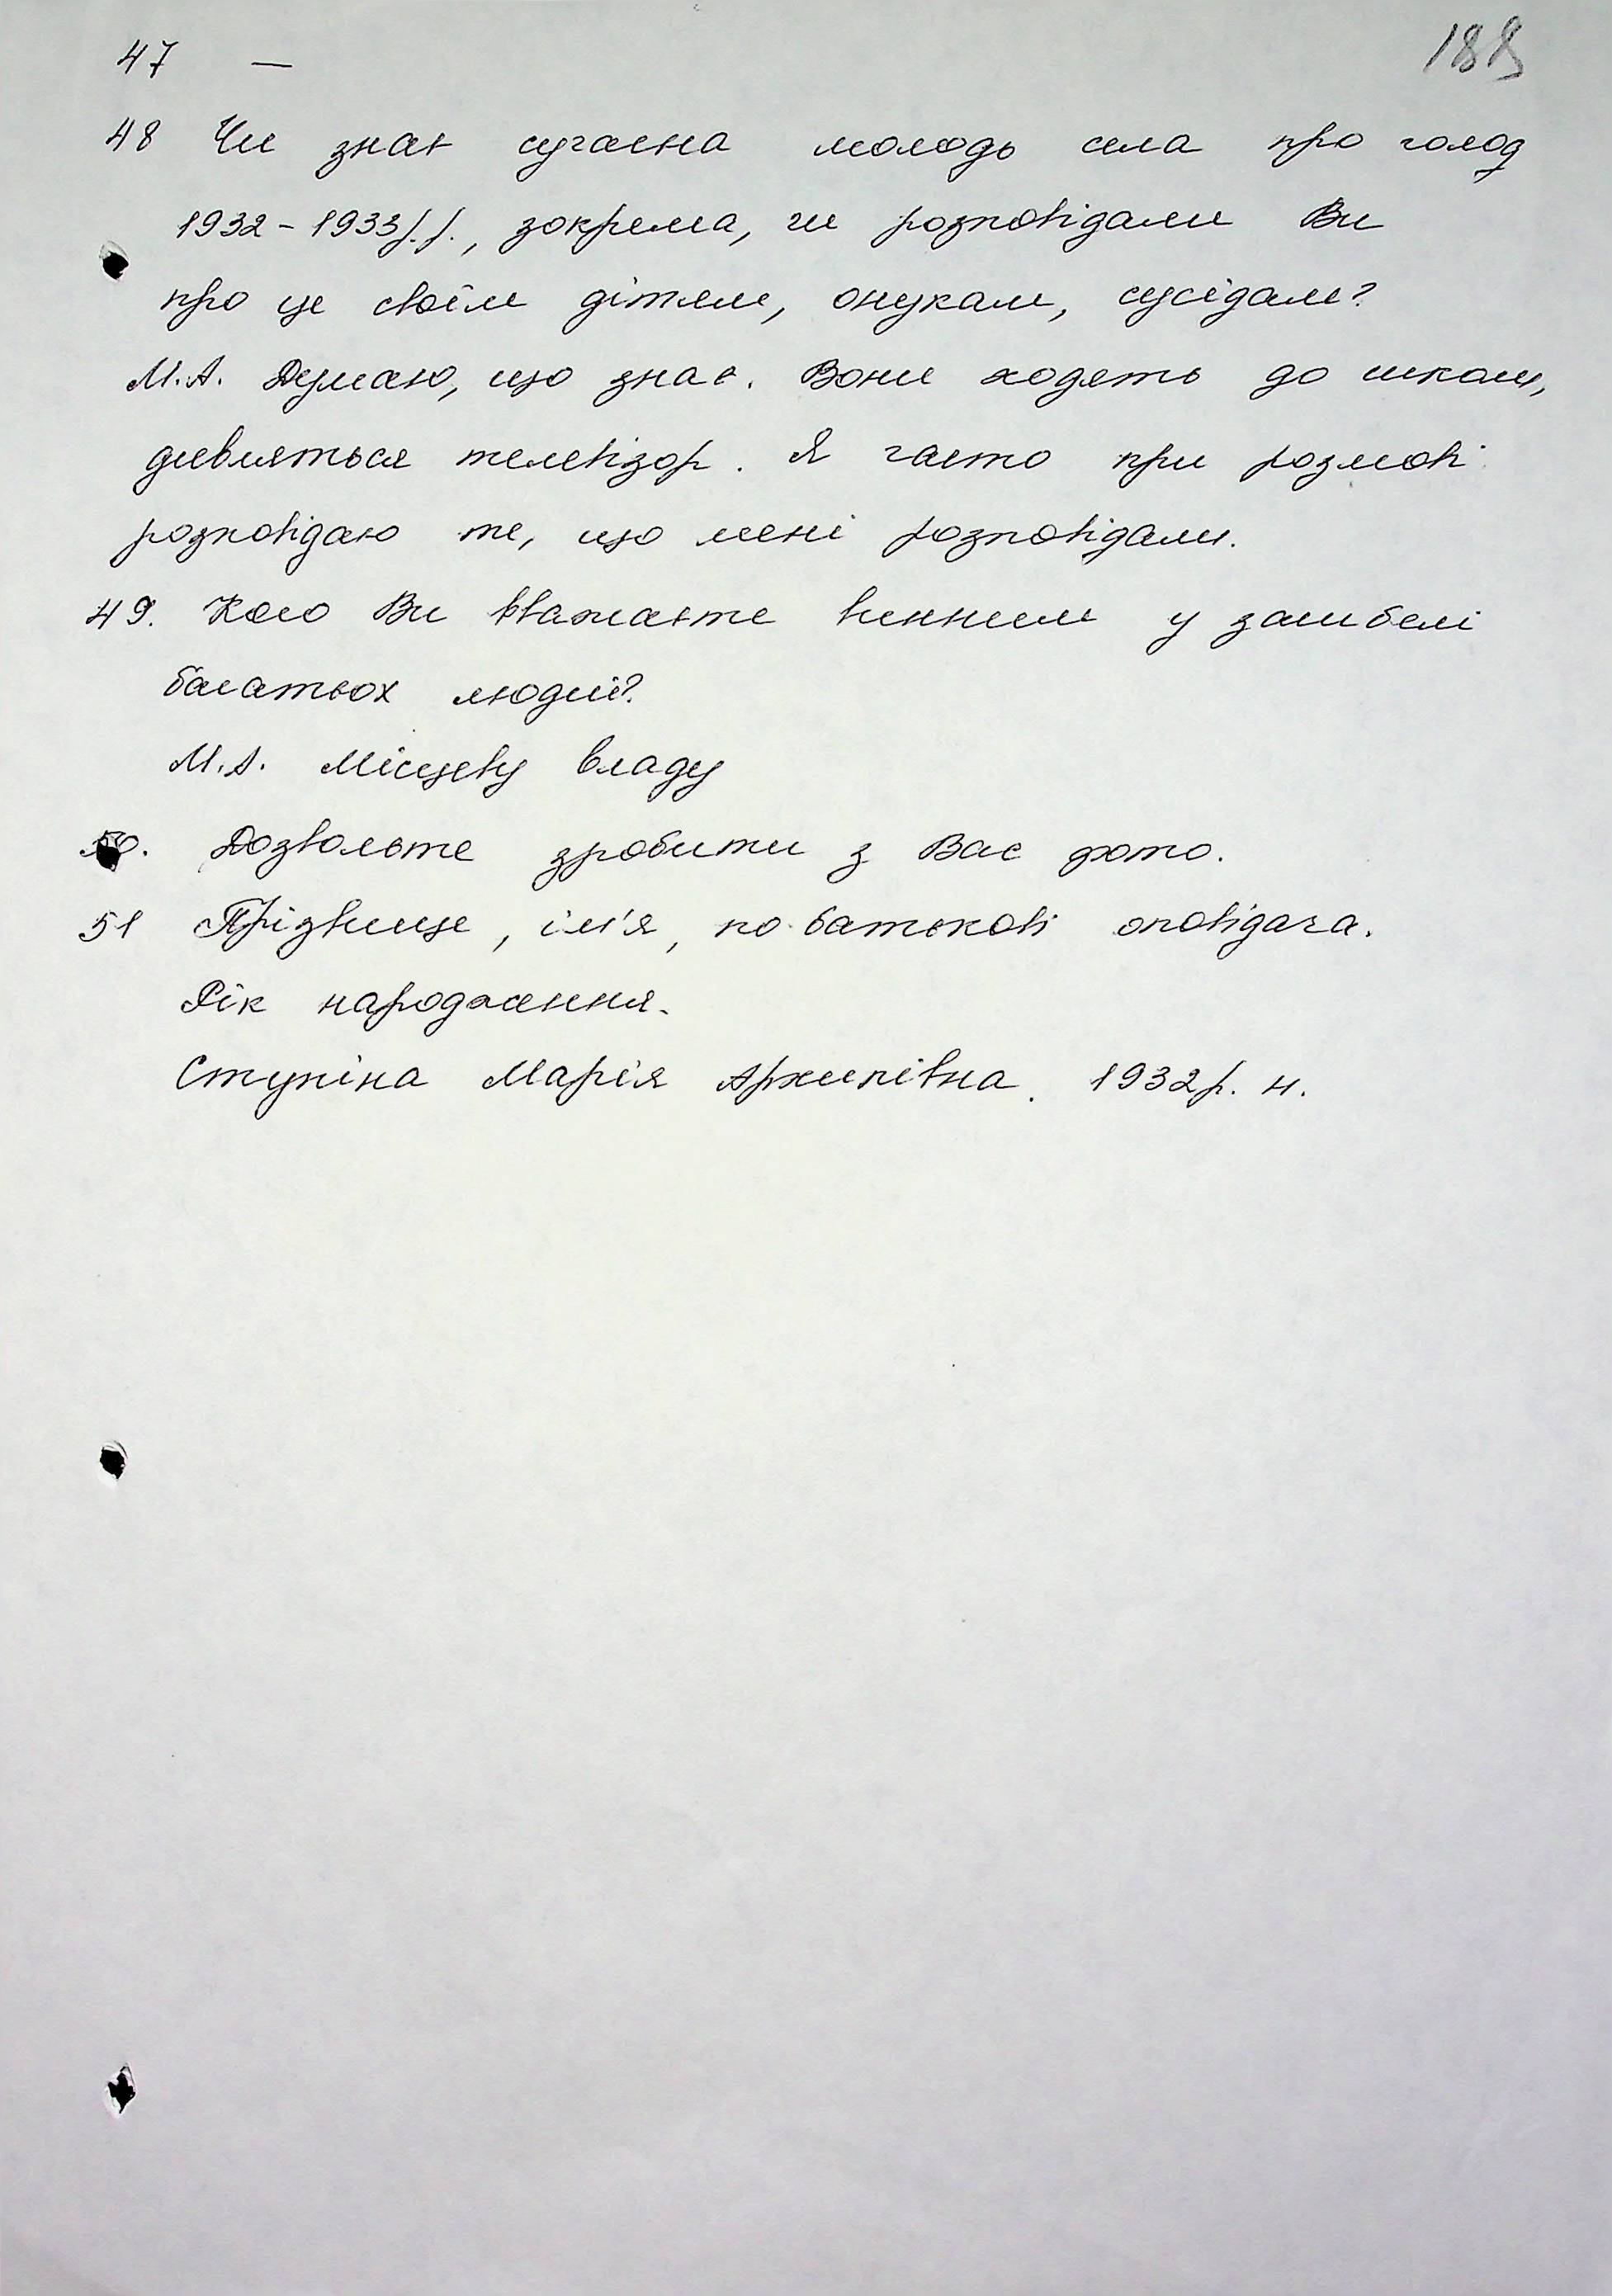 188
47 —
48 Чи знає сучасна молодь села про голод
1932-1933р.р., зокрема, чи розповідали Ви
про це своїм дітям, онукам, сусідам?
М.А. Думаю, що знає. Вони ходять до школи,
дивляться телевізор. Я часто при розмові
розповідаю те, що мені розповідали.
49. Кого Ви вважаєте винним у загибелі
багатьох людей?
М.А. Місцеву владу
50. Дозвольте зробити з Вас фото.
51 Прізвище, ім'я, по батькові оповідача.
Рік народження.
Ступіна Марія Архипівна. 1932р. н.